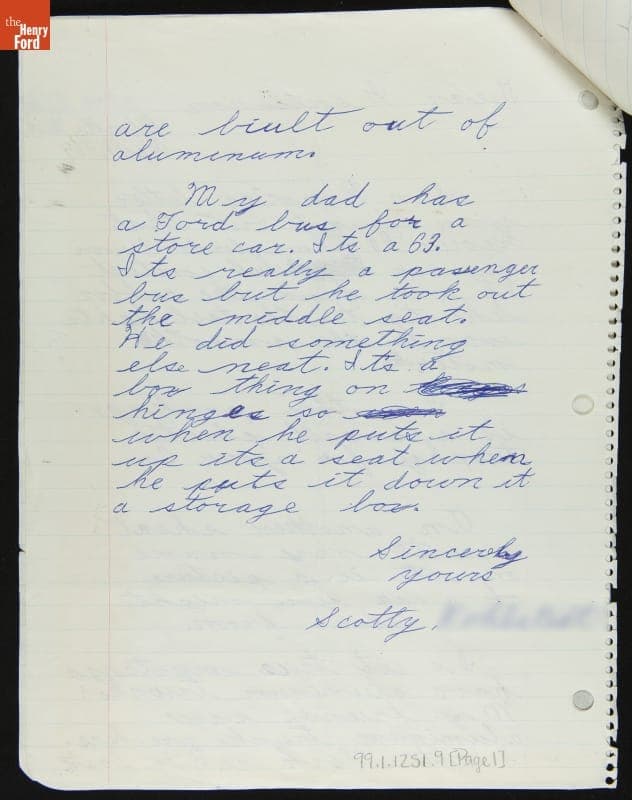 the
Henry
Ford
are biult out of
aluminum.
My dad has
a Ford bus for a
store car. Its a 63.
Its really a passenger
bus but he took out
the middle seat.
He did something
else neat. Its a
box thing on
hinges so
when he puts it
up its a seat when
he puts it down it
a storage box.
Sincerely
yours
Scotty,
99.1.1251.9 [Page 1]